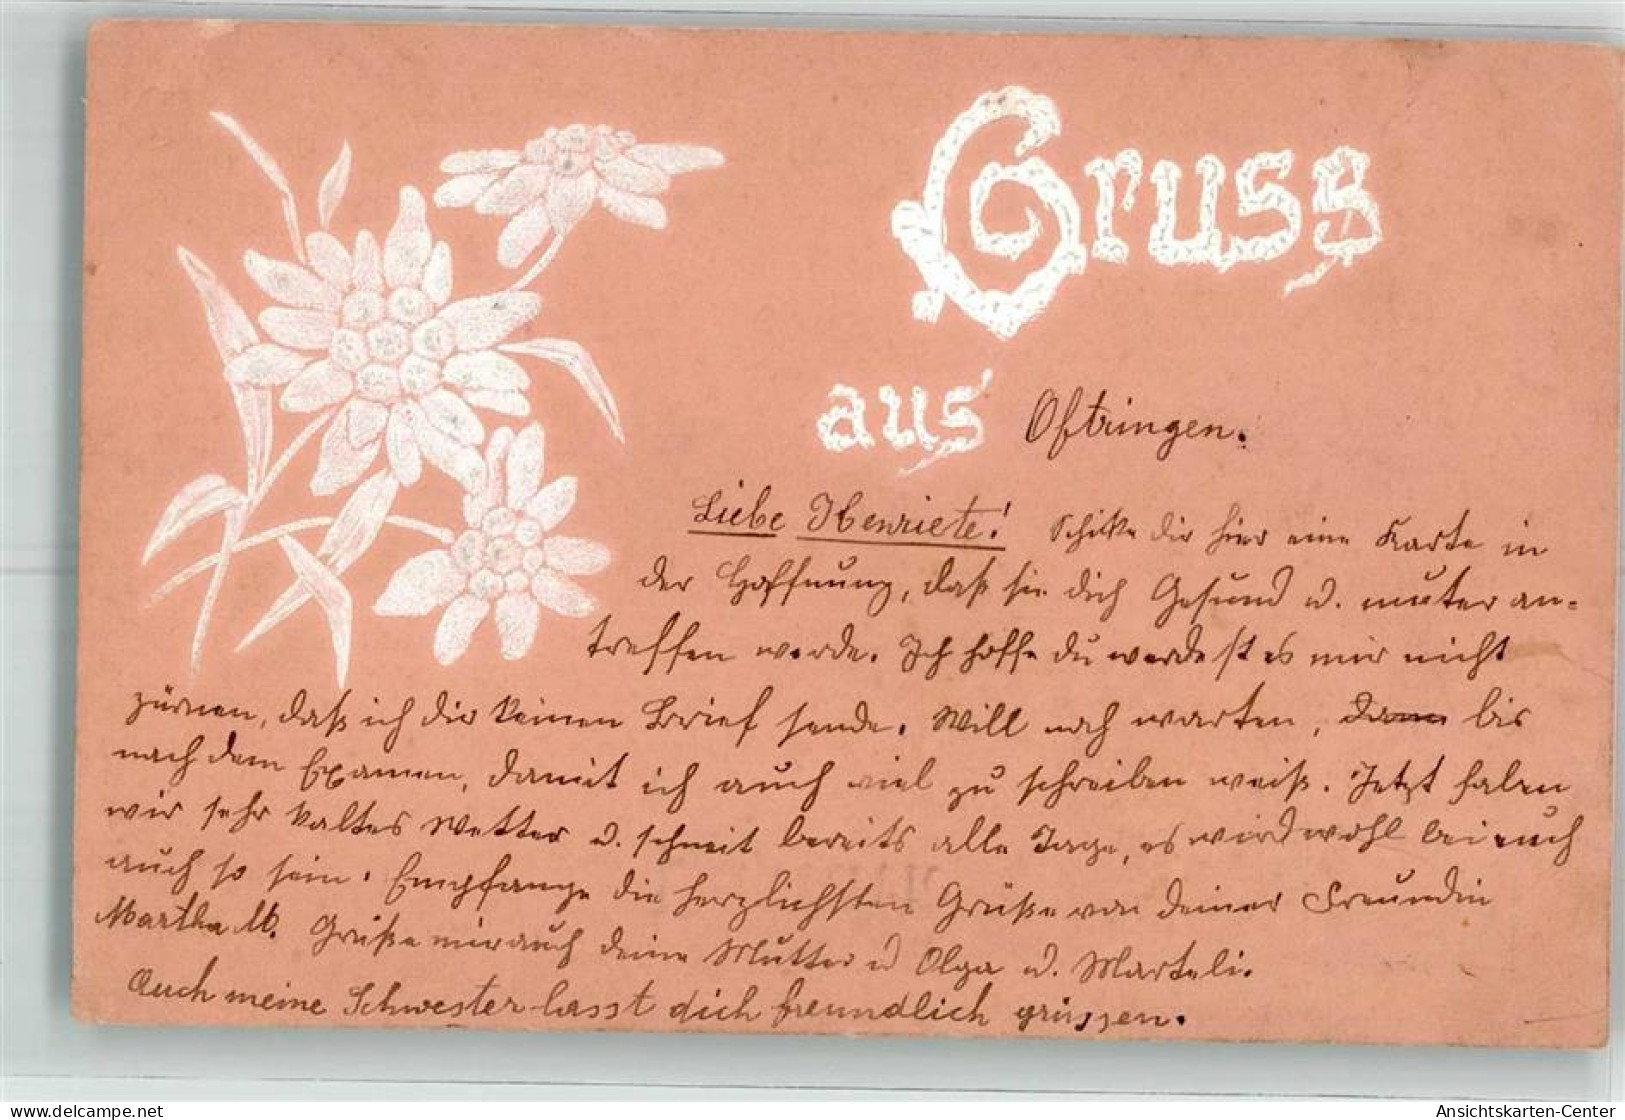 Gruss
aus Oftringen.
Liebe Henriete! Schike dir hier eine Karte in
der Hoffnung, daß sie dich Gesund u. muter an-
treffen werde. Ich hoffe du werdest es mir nicht
zürnen, daß ich dir keinen Brief sende. Will noch warten, dann bis
nach dem Examen, damit ich auch viel zu schreiben weiß. Jetzt haben
wir sehr kaltes Wetter u. schneit bereits alle Tage, es wird wohl bei euch
auch so sein. Empfange die herzlichsten Grüße von deiner Freundin
Martha M. Grüße mir auch deine Mutter u Olga u. Marteli.
Auch meine Schwester lasst dich freundlich grüssen.
www.delcampe.net
Ansichtskarten-Center